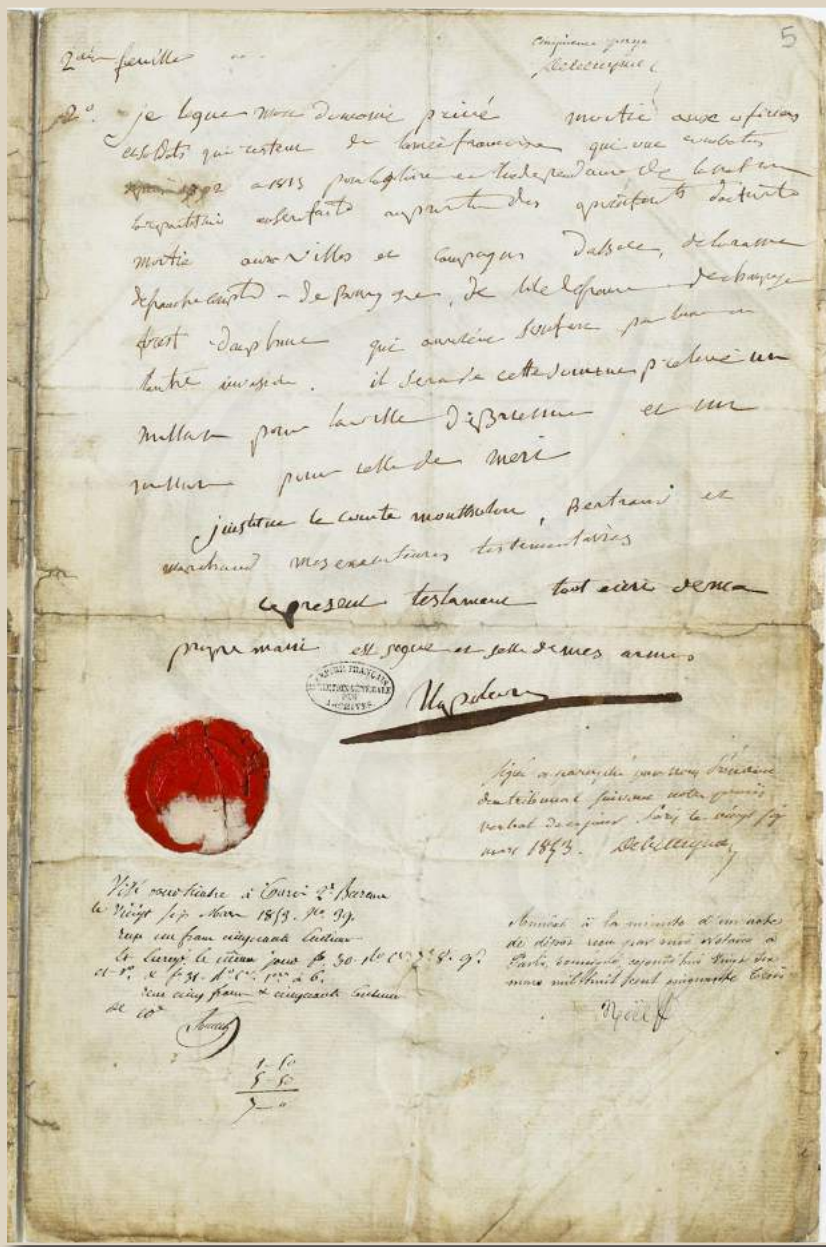 2em feuille
Cinquieme page
5
2°. je legue mon domaine privé moitié aux oficiers
et soldats qui restent de l'armée francaise qui ont combatus
1792 a 1815 pour la gloire et l'independance de la nation
la repartition en sera faite au prorata des d'activité
moitié aux villes et campagnes d'alsace, de loraine
de franche comté de Bourgogne, de l'ile de france de champagne
forest dauphiné qui auraient soufert par l'une ou
l'autre invasion. il sera de cette somme prelevé un
million pour la ville de Brienne et un
million pour celle de meri
j'institue le comte montholon, Bertrand et
marchand mes executeurs testamentaires
ce present testament tout ecrit de ma
propre main est signé et scellé de mes armes
EMPIRE FRANÇAIS
DIRECTION GÉNÉRALE
DES
ARCHIVES
Napoleon
Signé et paraphé par nous Président
du tribunal suivant notre procès
verbal de ce jour Paris le vingt six
mars 1853.
Visé pour timbre à Paris 2e Bureau
le vingt six Mars 1853. No 39.
reçu un franc cinquante centimes
Et Enregé le même jour fo 30
reçu cinq francs & cinquante centimes
Annexé à la minute d'un acte
de dépôt reçu par Notaire à
Paris, soussigné cejourd'hui vingt six
mars mil huit cent cinquante trois
Noël
1-50
5-50
7-"